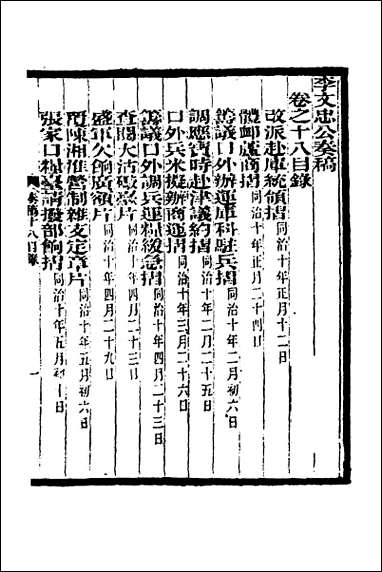 李文忠公奏稿
卷之十八目錄
改派赴庫統領摺同治十年正月十二日
體卹蘆商摺同治十年正月二十四日
籌議口外辦運庫科駐兵摺同治十年二月初六日
調應寶時赴津議約摺同治十年二月二十五日
口外兵米擬辦商運摺同治十年三月二十六日
籌議口外調兵運糧緩急摺同治十年四月二十三日
查閱大沽礮臺片同治十年四月二十三日
盛軍久餉廣額片同治十年四月二十九日
陳湘淮營制雜支定章片同治十年五月初六日
張家口糧臺請撥部餉摺同治十年五月初十日
奏稿十八目錄
一